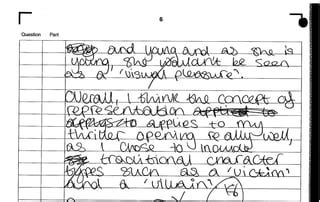 6
Question Part
and young and as she is
young, she wouldn't be seen
as a 'visual pleasure'.
Overall, I think the concept of
representation applied to
applies to applies to my
thriller opening really well,
as I chose to include
traditional character
types such as a 'victim'
and a 'villain'.